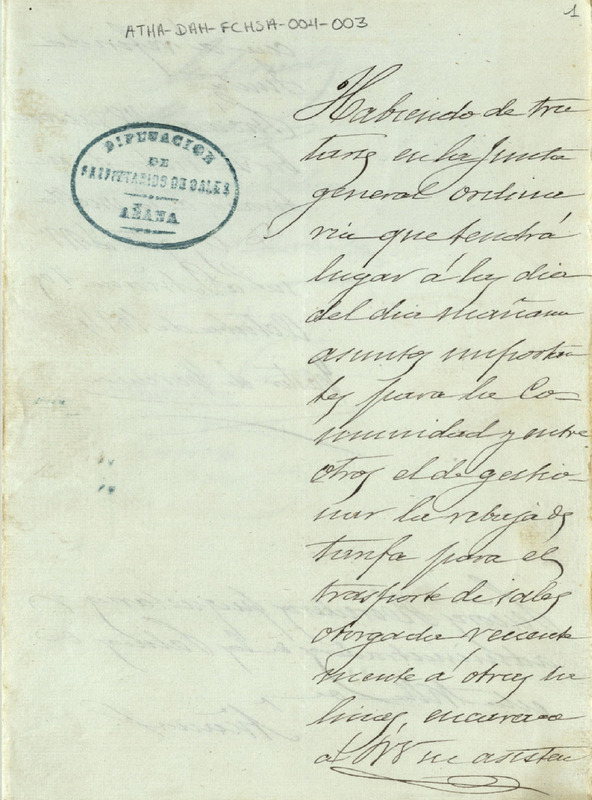 ATHA-DAH-FCHSA-004-003
1
DIPUTACION
DE
PROPIETARIOS DE SALES
AÑANA
Habiendo de tra
tarse en la Junta
general ordina
ria que tendrá
lugar á las diez
del dia mañana
asuntos importan
tes para la Co=
munidad y entre
otros el de gestio-
nar la rebaja de
tarifa para el
trasporte de sales
otorgada reciente
mente á otras sa
linas, encarezco
á V. su asisten